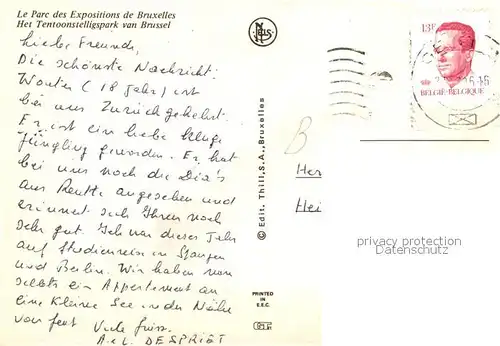 Le Parc des Expositions de Bruxelles
Het Tentoonstelligspark van Brussel
NELS
Liebe Freunde,
Die schönste Nachricht:
Wouter (18 Jahr) ist
bei uns Zurück gekehrt.
Er ist ein liebe kluge
Jüngling geworden. Er hat
bei uns noch die Dia's
aus Reutte angesehen und
erinnert sich Ihnen noch
sehr gut. Ich war dieses Jahr
auf Studienreise in Spanjen
und Berlin. Wir haben nun
selbst ein Appartement an
eine kleine See in der Nähe
von
Viele Grüsse
A.L. DESPRIET
© Edit. Thill, S.A., Bruxelles
PRINTED IN
E.E.C.
13F
BELGIË-BELGIQUE
B
Her
Hei
privacy protection
Datenschutz